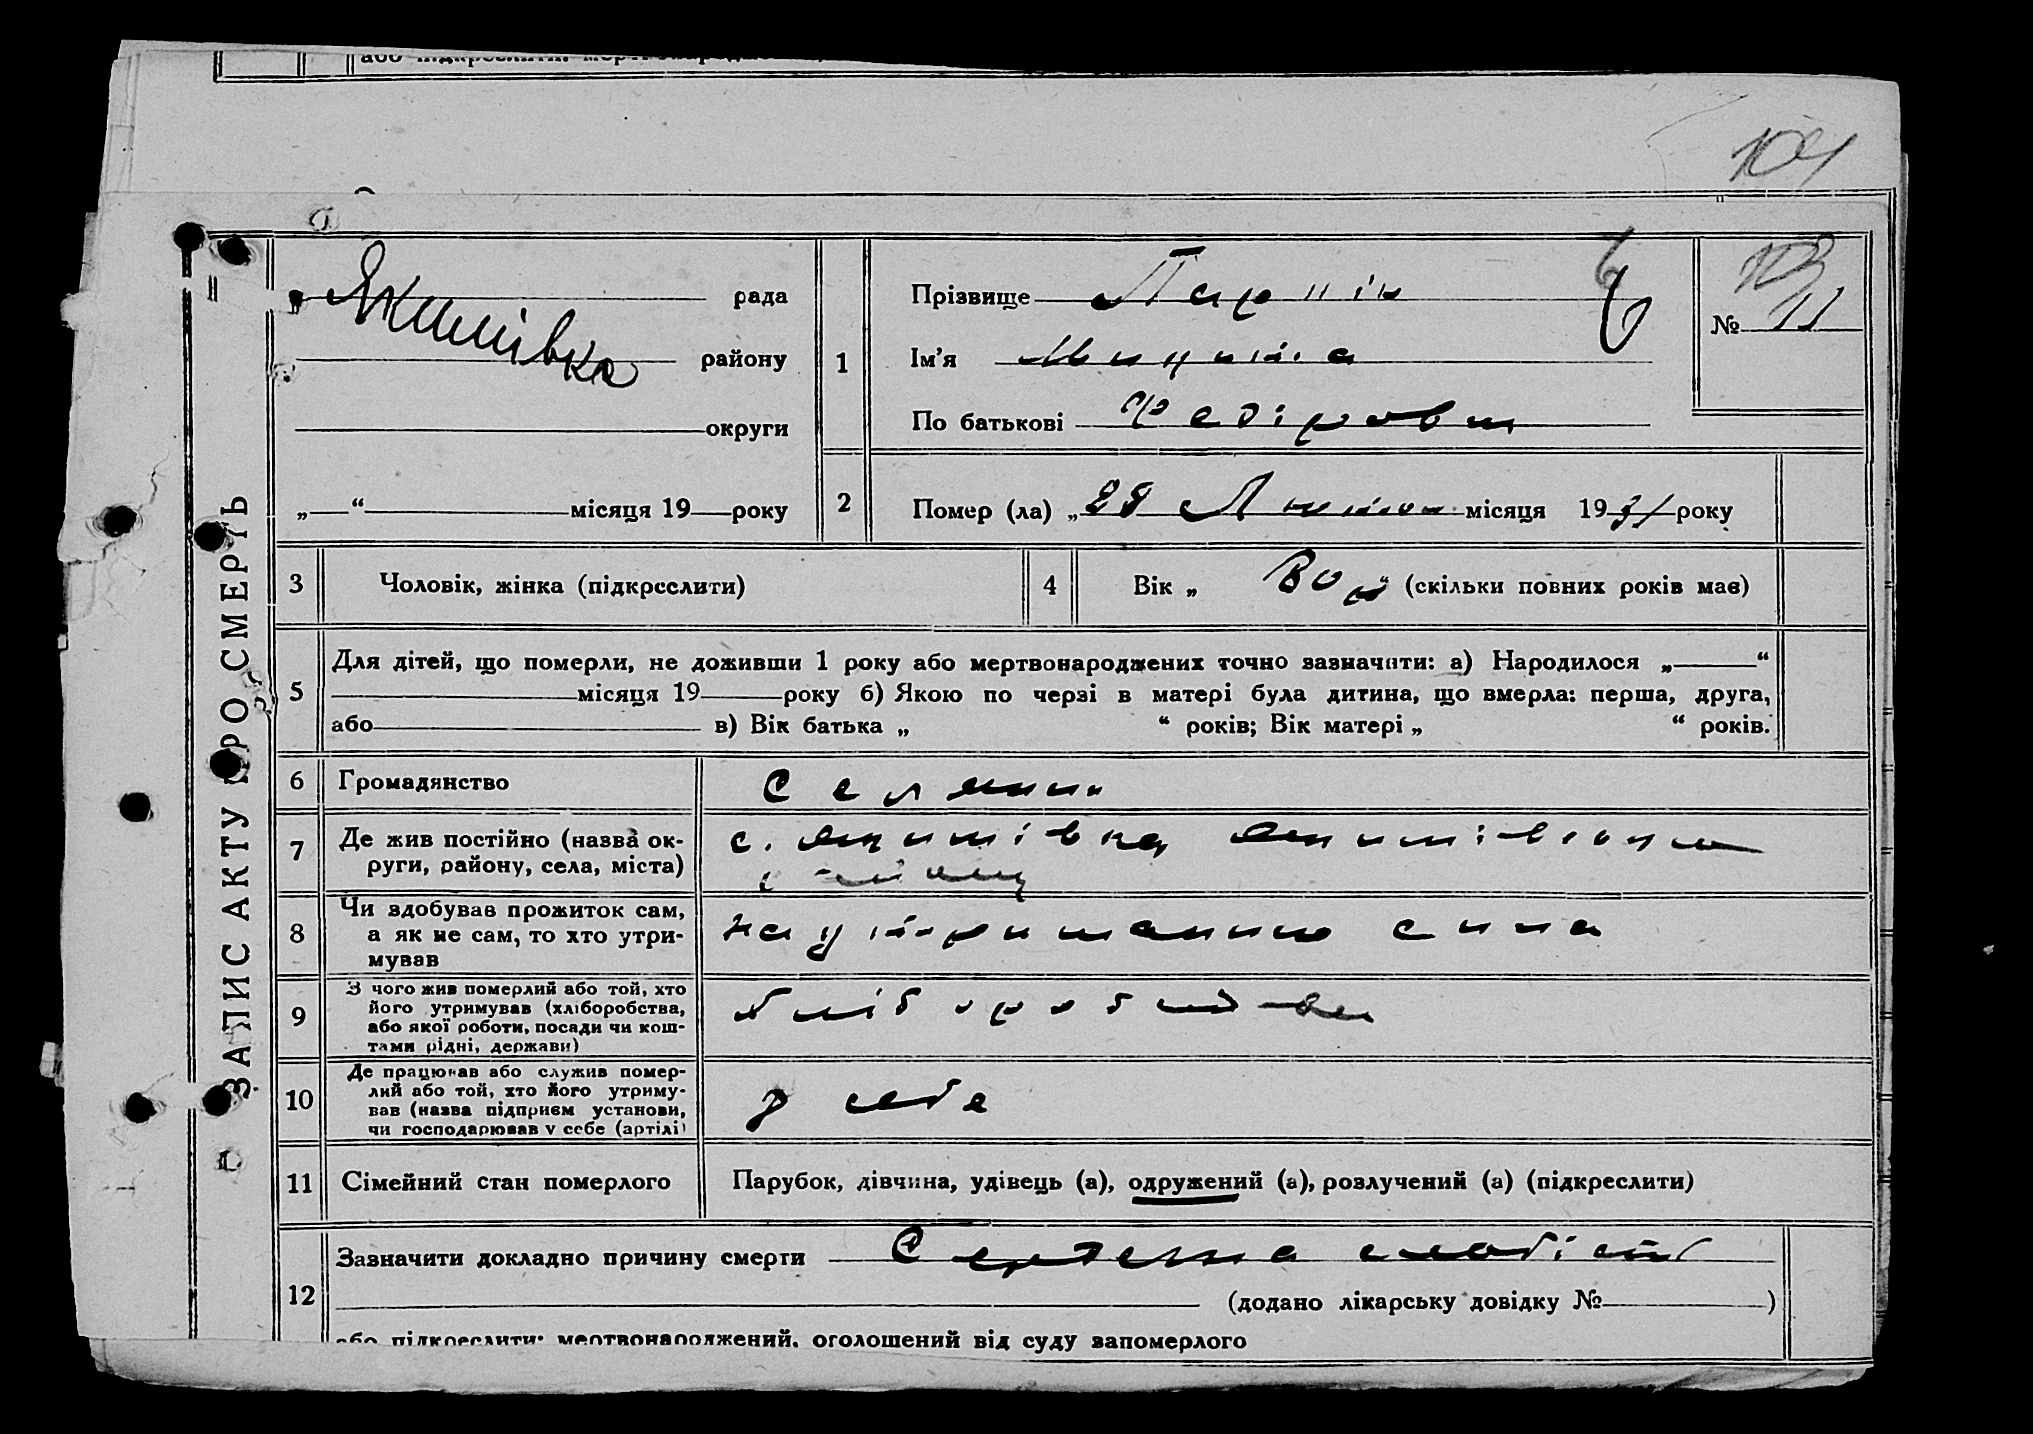 104
103
ЗАПИС АКТУ ПРО СМЕРТЬ
Якимівка рада
району
округи
„ “ місяця 19 року
1
Прізвище
Ім’я Микита
По батькові Федірович
№ 11
2
Помер (ла) „28 Лютого місяця 1931 року
3 Чоловік, жінка (підкреслити)
4 Вік „ 80 “ (скільки повних років мав)
5
Для дітей, що померли, не доживши 1 року або мертвонароджених точно зазначити: а) Народилося „ “
місяця 19 року б) Якою по черзі в матері була дитина, що вмерла: перша, друга,
або в) Вік батька „ “ років; Вік матері „ “ років.
6 Громадянство Селянин
7 Де жив постійно (назва ок-
руги, району, села, міста)
с. Якимівка Якимівського
району
8 Чи здобував прожиток сам,
а як не сам, то хто утри-
мував
на утриманню сина
9 З чого жив померлий або той, хто
його утримував (хліборобства,
або якої роботи, посади чи кош-
тами рідні, держави)
хліборобства
10 Де працював або служив помер-
лий або той, хто його утриму-
вав (назва підприєм установи,
чи господарював у себе (артілі)
у себе
11 Сімейний стан померлого Парубок, дівчина, удівець (а), одружений (а), розлучений (а) (підкреслити)
12
Зазначити докладно причину смерти Сердешна слабість
(додано лікарську довідку № )
або підкреслити: мертвонароджений, оголошений від суду запомерлого